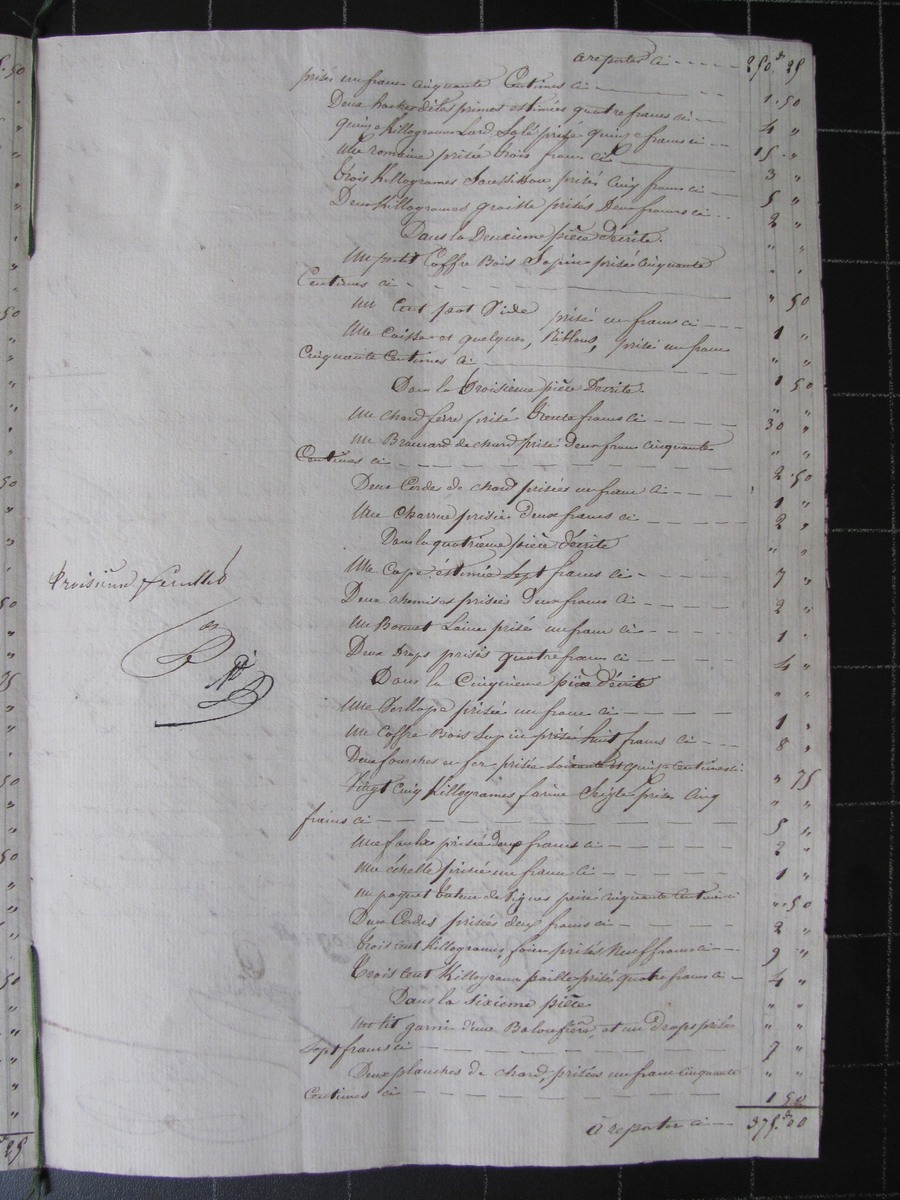 a reporter ci - - - - - 250.f 25
prisé un franc cinquante Centimes ci 1.50
Deux haches dites primes estimées quatre francs ci 4 "
quinze killogrames Lard Salé prisé quinze francs ci 15 "
une romaine prisée trois francs ci 3 "
trois killogrames Saussisson prisés Cinq francs ci 5 "
Deux killogrames graisse prisés Deux francs ci 2 "
Dans la Deuxieme pièce décrite. " "
Un petit Coffre Bois Sapin prisé cinquante " "
Centimes ci " 50
Un pot Vide prisé un franc ci 1 "
Une caisse et quelques, prisé un franc " "
Cinquante Centimes ci 1 50
Dans la troisieme pièce Decrite. " "
Un chard ferré prisé trente francs ci 30 "
Un Brancard de chard prisé deux franc cinquante " "
Centimes ci 2.50
Deux Cordes de chard prisées un franc ci 1 "
Une charrue prisée deux francs ci 2 "
Dans la quatrieme pièce décrite " "
Une Cape estimée Sept francs ci 7 "
troisieme feuillet
Deux chemises prisées Deux francs ci 2 "
Un Bonnet Laine prisé un franc ci 1 "
Deux Draps prisés quatre francs ci 4 "
Dans la Cinquieme pièce décrite " "
Une Verlope prisée un franc ci 1 "
Un Coffre Bois Sapin prisé huit francs ci 8 "
Deux fourches en fer prisées soixante et quinze Centimes ci " 75
Vingt Cinq killogrames farine Seigle prisée Cinq " "
francs ci 5 "
Une faulx prisée deux francs ci 2 "
Une échelle prisée un franc ci 1 "
un paquet de Vignes prisé cinquante Centimes ci " 50
Deux Cordes prisées deux francs ci 2 "
trois cent killogrames foin prisés Neuf francs ci 9 "
Trois Cent killograme paille prisé quatre francs ci 4 "
Dans la Sixieme pièce " "
Un lit garni d'une et un Draps prisés " "
Sept francs ci 7 "
Deux planches de chard, prisées un franc cinquante " "
Centimes ci 1 50
à reporter ci 375.f 00